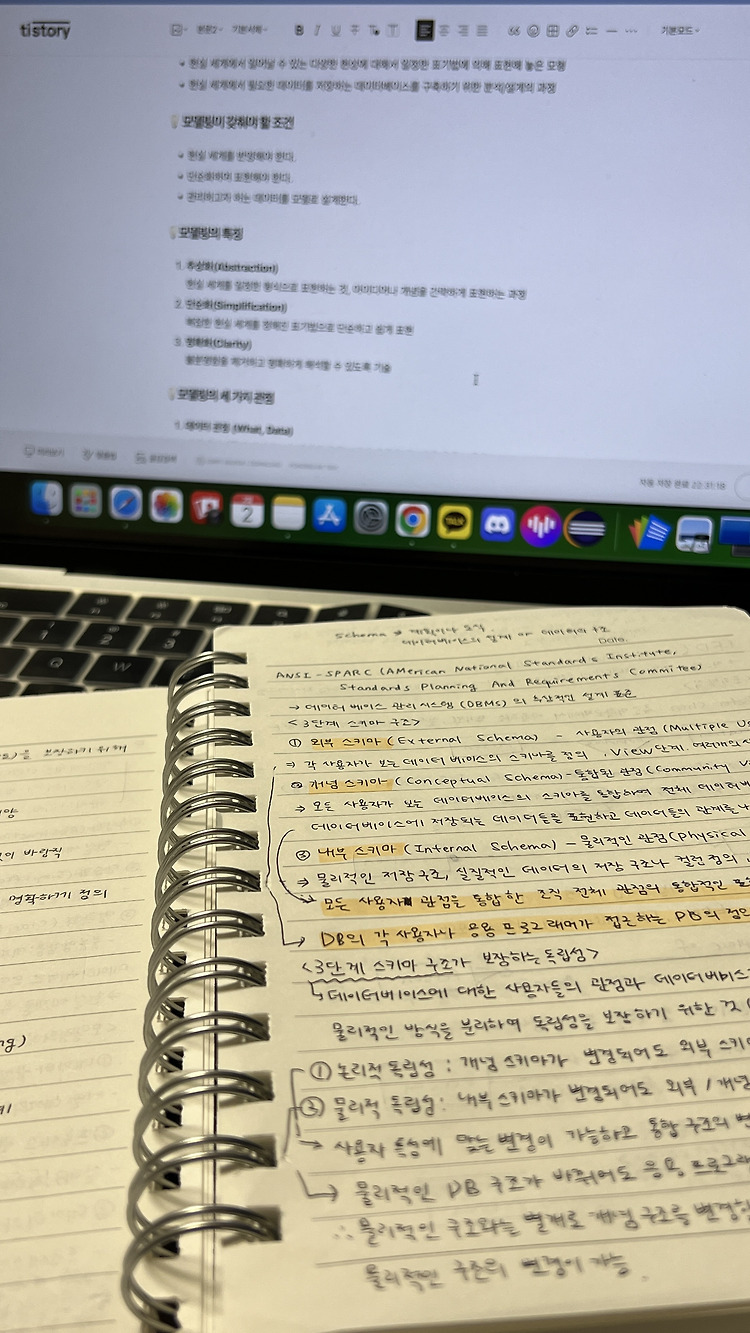 tistory
본문2
기본서체
B I U T
기본모드
현실 세계에서 일어날 수 있는 다양한 현상에 대해서 일정한 표기법에 의해 표현해 놓은 모형
현실 세계에서 필요한 데이터를 저장하는 데이터베이스를 구축하기 위한 분석/설계의 과정
모델링이 갖춰야 할 조건
현실 세계를 반영해야 한다.
단순화하여 표현해야 한다.
관리하고자 하는 데이터를 모델로 설계한다.
모델링의 특징
1. 추상화(Abstraction)
현실 세계를 일정한 형식으로 표현하는 것, 아이디어나 개념을 간략하게 표현하는 과정
2. 단순화(Simplification)
복잡한 현실 세계를 정해진 표기법으로 단순하고 쉽게 표현
3. 명확화(Clarity)
불분명함을 제거하고 명확하게 해석할 수 있도록 기술
모델링의 세 가지 관점
1. 데이터 관점 (What, Data)
자동 저장 완료 22:31:18
2
TALK
1
2
3
Q
W
Schema → 계획이나 도식
데이터베이스의 설계 or 데이터 구조
Date.
ANSI-SPARC (AMerican National Standards Institute,
Standards Planning And Requirements Commitee)
→ 데이터 베이스 관리 시스템 (DBMS) 의 추상적인 설계 표준
<3단계 스키마 구조>
① 외부 스키마 (External Schema) - 사용자의 관점 (Multiple Us
→ 각 사용자가 보는 데이터 베이스의 스키마를 정의. View 단계. 여러개의
② 개념 스키마 (Conceptual Schema) - 통합된 관점 (Community Vi
→ 모든 사용자가 보는 데이터베이스의 스키마를 통합하여 전체 데이터베
데이터베이스에 저장되는 데이터들을 표현하고 데이터들의 관계를 나
③ 내부 스키마 (Internal Schema) - 물리적인 관점 (Physical
→ 물리적인 저장 구조, 실질적인 데이터의 저장 구조나 컬럼 정의
→ 모든 사용자 관점을 통합한 조직 전체 관점의 통합적인 표
→ DB의 각 사용자나 응용 프로그래머가 접근하는 DB의 정의
<3단계 스키마 구조가 보장하는 독립성>
↳ 데이터베이스에 대한 사용자들의 관점과 데이터베이스
물리적인 방식을 분리하여 독립성을 보장하기 위한 것
① 논리적 독립성 : 개념 스키마가 변경되어도 외부 스키
② 물리적 독립성 : 내부 스키마가 변경되어도 외부 / 개념
→ 사용자 특성에 맞는 변경이 가능하고 통합 구조의 변
→ 물리적인 DB 구조가 바뀌어도 응용 프로그래
∴ 물리적인 구조와는 별개로 개념 구조를 변경
물리적인 구조의 변경이 가능.
을 보장하기 위해
이 바람직
명확하게 정의
ng)